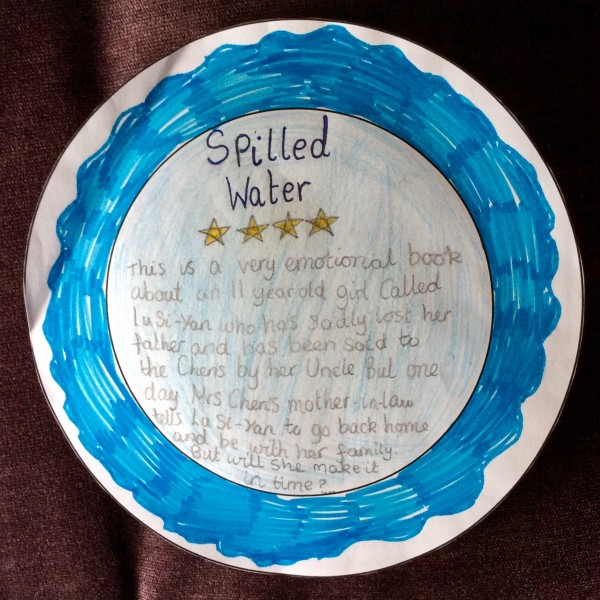 Spilled
Water
This is a very emotional book
about an 11 year old girl Called
Lu Si-Yan who has sadly lost her
father and has been sold to
the Chens by her Uncle But one
day Mrs Chens mother-in-law
tells Lu Si-Yan to go back home
and be with her family.
But will she make it
in time?....